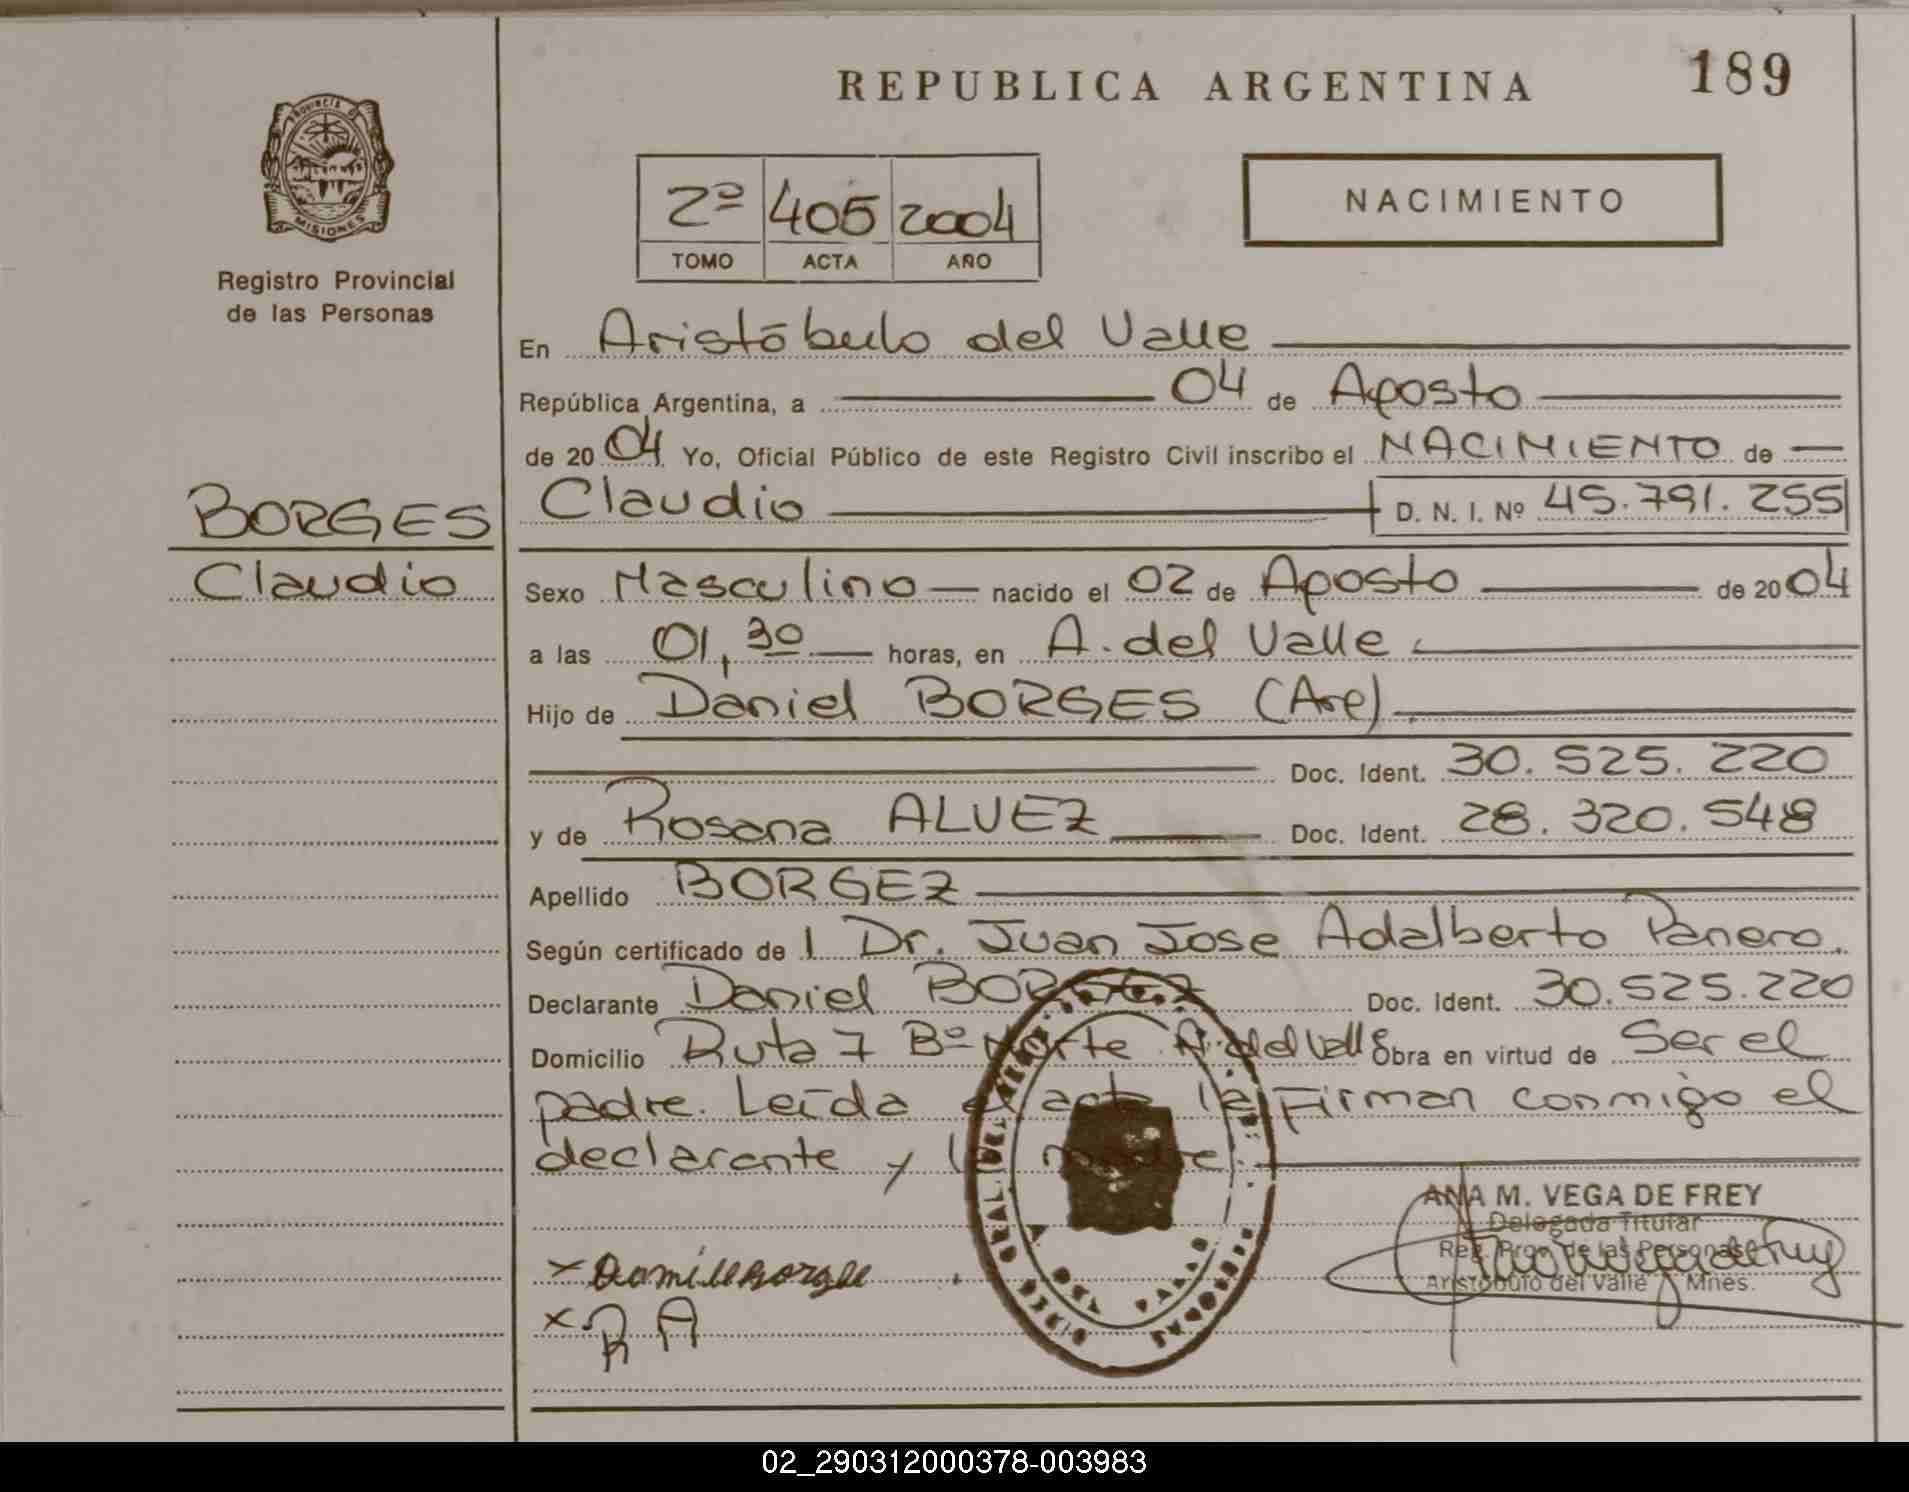 REPUBLICA ARGENTINA
189
PROVINCIA DE
MISIONES
Registro Provincial
de las Personas
2º 405 2004
TOMO ACTA AÑO
NACIMIENTO
En Aristóbulo del Valle
República Argentina, a 04 de Agosto
de 2004 Yo, Oficial Público de este Registro Civil inscribo el NACIMIENTO de
BORGES
Claudio
Claudio D. N. I. Nº 45.791.255
Sexo Masculino nacido el 02 de Agosto de 2004
a las 01,30 horas, en A. del Valle
Hijo de Daniel BORGES (Arg)
Doc. Ident. 30.525.220
y de Rosana ALVEZ Doc. Ident. 28.320.548
Apellido BORGEZ
Según certificado de l Dr. Juan Jose Adalberto Panero.
Declarante Daniel BORGEZ Doc. Ident. 30.525.220
Domicilio Ruta 7 Bº Norte A. del Valle Obra en virtud de Ser el
padre. Leída el acta la Firman conmigo el
declarante y la madre.
ANA M. VEGA DE FREY
Delegada Titular
Reg. Prov. de las Personas
Aristóbulo del Valle Mnes.
x
x R A
02_290312000378-003983